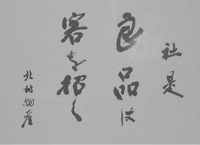 社是
良品は
客を招く
北村